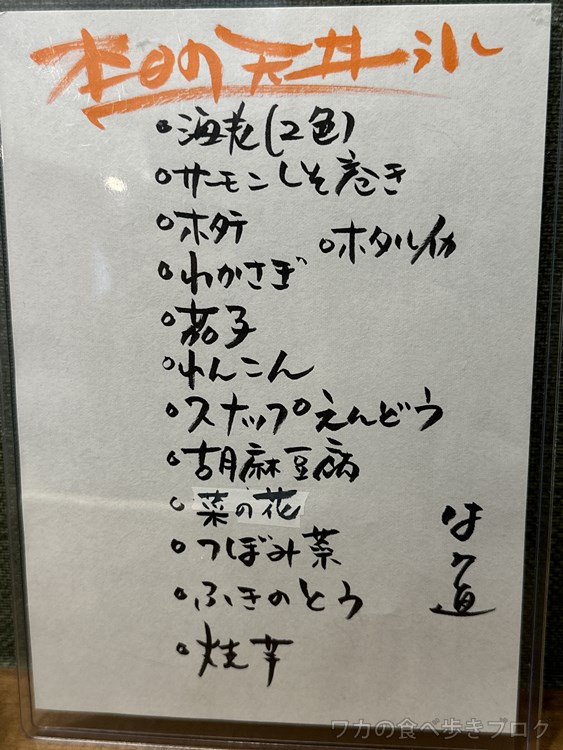 本日の天丼
○海老(2色)
○サーモンしそ巻き
○ホタテ
○ホタルイカ
○わかさぎ
○茄子
○れんこん
○スナップえんどう
○胡麻豆腐
○菜の花
○つぼみ菜
○ふきのとう
○焼芋
ワカの食べ歩きブログ